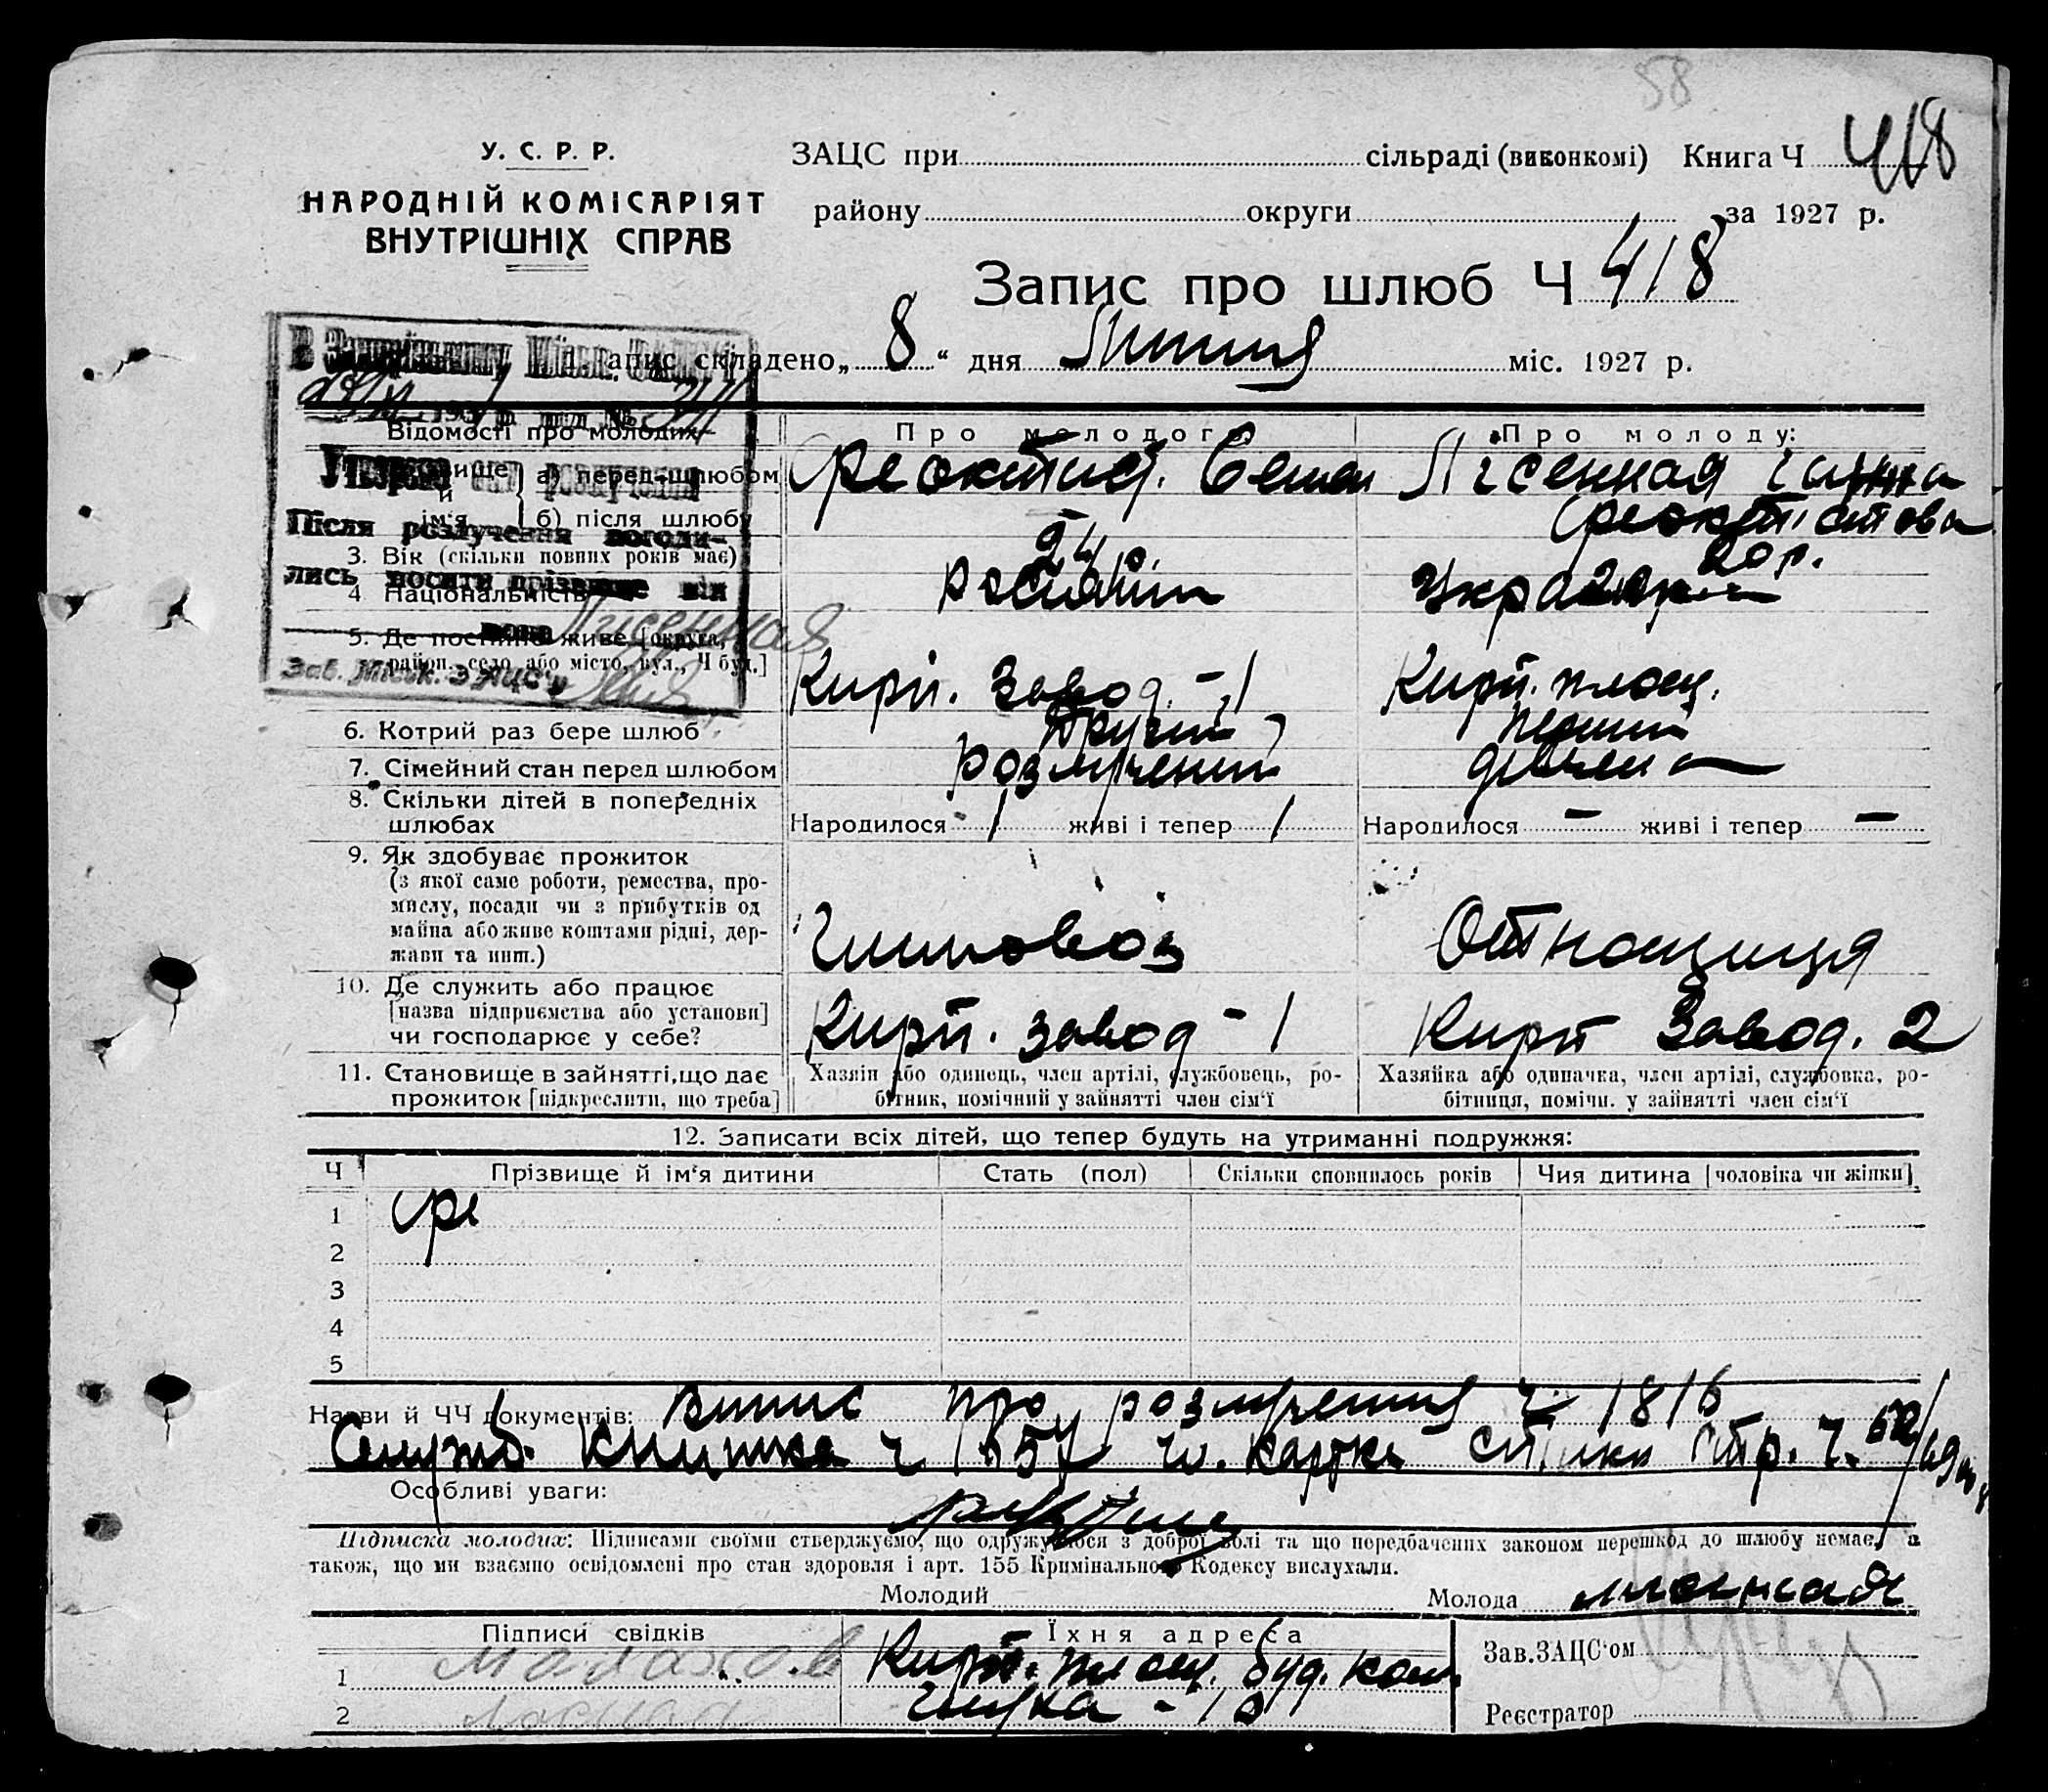 58
У. С. Р. Р.
НАРОДНІЙ КОМІСАРІЯТ
ВНУТРІШНІХ СПРАВ
ЗАЦС при сільраді (виконкомі) Книга Ч 418
району округи за 1927 р.
Запис про шлюб Ч 418
апис складено „ 8 “ дня Липня міс. 1927 р.
Відомості про молодих
Про молодого
Про молоду:
а) перед шлюбом
й
ім'я б) після шлюбу
Лісенная
Після розлучення погоди-
лись носити прізвище він
вона Лисенная
Зав. Міськ. ЗАЦС'у
3. Вік (скільки повних років має)
24 р.
20 р.
4. Національність
росіянин
Українка
5. Де постійно живе [округа,
район, село або місто, вул., Ч буд.]
Кирп. Завод. - 1
Кирп. площ.
6. Котрий раз бере шлюб
Другий
перший
7. Сімейний стан перед шлюбом
розлучений
дівчена
8. Скільки дітей в попередніх
шлюбах
Народилося - 1 живі і тепер 1
Народилося — живі і тепер —
9. Як здобуває прожиток
(з якої саме роботи, ремества, про-
мислу, посади чи з прибутків од
майна або живе коштами рідні, дер-
жави та инш.)
Глиновоз
Отнощиця
10. Де служить або працює
[назва підприємства або установи]
чи господарює у себе?
Кирп. завод - 1
Кирп Завод. 2
11. Становище в зайнятті, що дає
прожиток [підкреслити, що треба]
Хазяїн або одинець, член артілі, службовець, ро-
бітник, помічний у зайнятті член сім'ї
Хазяйка або одиначка, член артілі, службовка, ро-
бітниця, помічн. у зайнятті член сім'ї
12. Записати всіх дітей, що тепер будуть на утриманні подружжя:
Ч Прізвище й ім'я дитини Стать (пол) Скільки сповнилось років Чия дитина [чоловіка чи жінки]
1
2
3
4
5
Назви й ЧЧ документів: Випис про розлучення ч 1816
Служб. Книжка ч
Особливі уваги:
Підписка молодих: Підписами своїми стверджуємо, що одружуємося з доброї волі та що передбачених законом перешкод до шлюбу немає, а
також, що ми взаємно освідомлені про стан здоровля і арт. 155 Кримінального Кодексу вислухали.
Молодий Молода
Підписи свідків Їхня адреса
1 Малахов Кирп. площ. буд. ком.
2
Зав. ЗАЦС'ом
Реєстратор